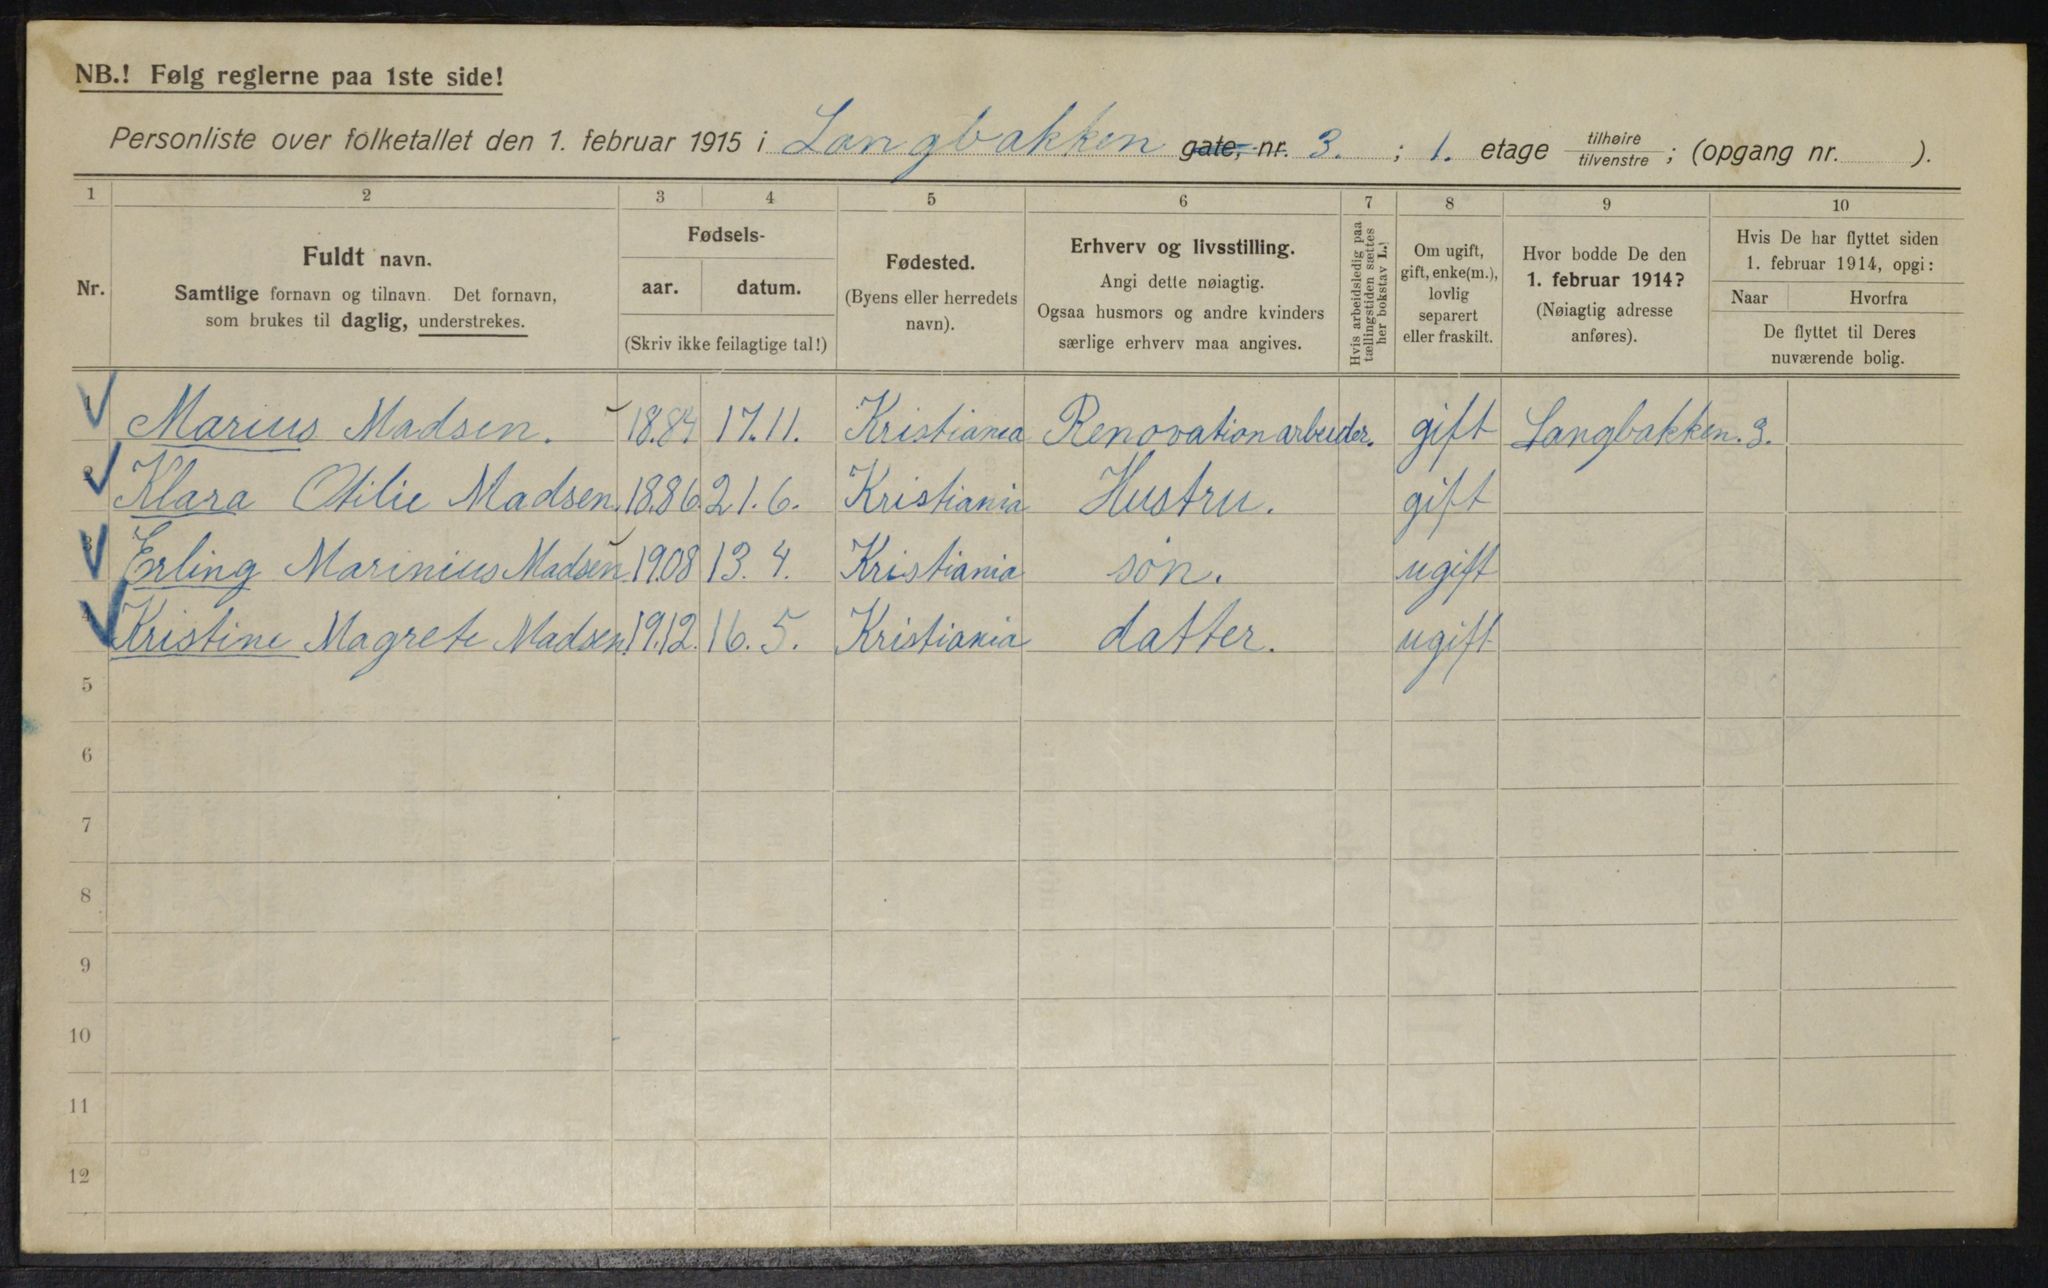 NB.! Følg reglerne paa 1ste side!
Personliste over folketallet den 1. februar 1915 i Langbakken gate, nr. 3. ; 1. etage tilhøire tilvenstre ; (opgang nr. ).
1 2 3 4 5 6 7 8 9 10
Nr.
Fuldt navn.
Samtlige fornavn og tilnavn. Det fornavn,
som brukes til daglig, understrekes.
Fødsels-
aar. datum.
(Skriv ikke feilagtige tal!)
Fødested.
(Byens eller herredets
navn).
Erhverv og livsstilling.
Angi dette nøiagtig.
Ogsaa husmors og andre kvinders
særlige erhverv maa angives.
Hvis arbeidsledig paa
tællingstiden sættes
her bokstav L.!
Om ugift,
gift, enke(m.),
lovlig
separert
eller fraskilt.
Hvor bodde De den
1. februar 1914?
(Nøiagtig adresse
anføres).
Hvis De har flyttet siden
1. februar 1914, opgi:
Naar Hvorfra
De flyttet til Deres
nuværende bolig.
1 Marius Madsen. 18.84 17.11. Kristiania Renovationarbeider. gift Langbakken. 3.
2 Klara Otilie Madsen. 18.86. 21.6. Kristiania Hustru. gift
3 Erling Marinius Madsen. 19.08 13.4. Kristiania søn. ugift
4 Kristine Magrete Madsen. 19.12. 16.5. Kristiania datter. ugift
5
6
7
8
9
10
11
12